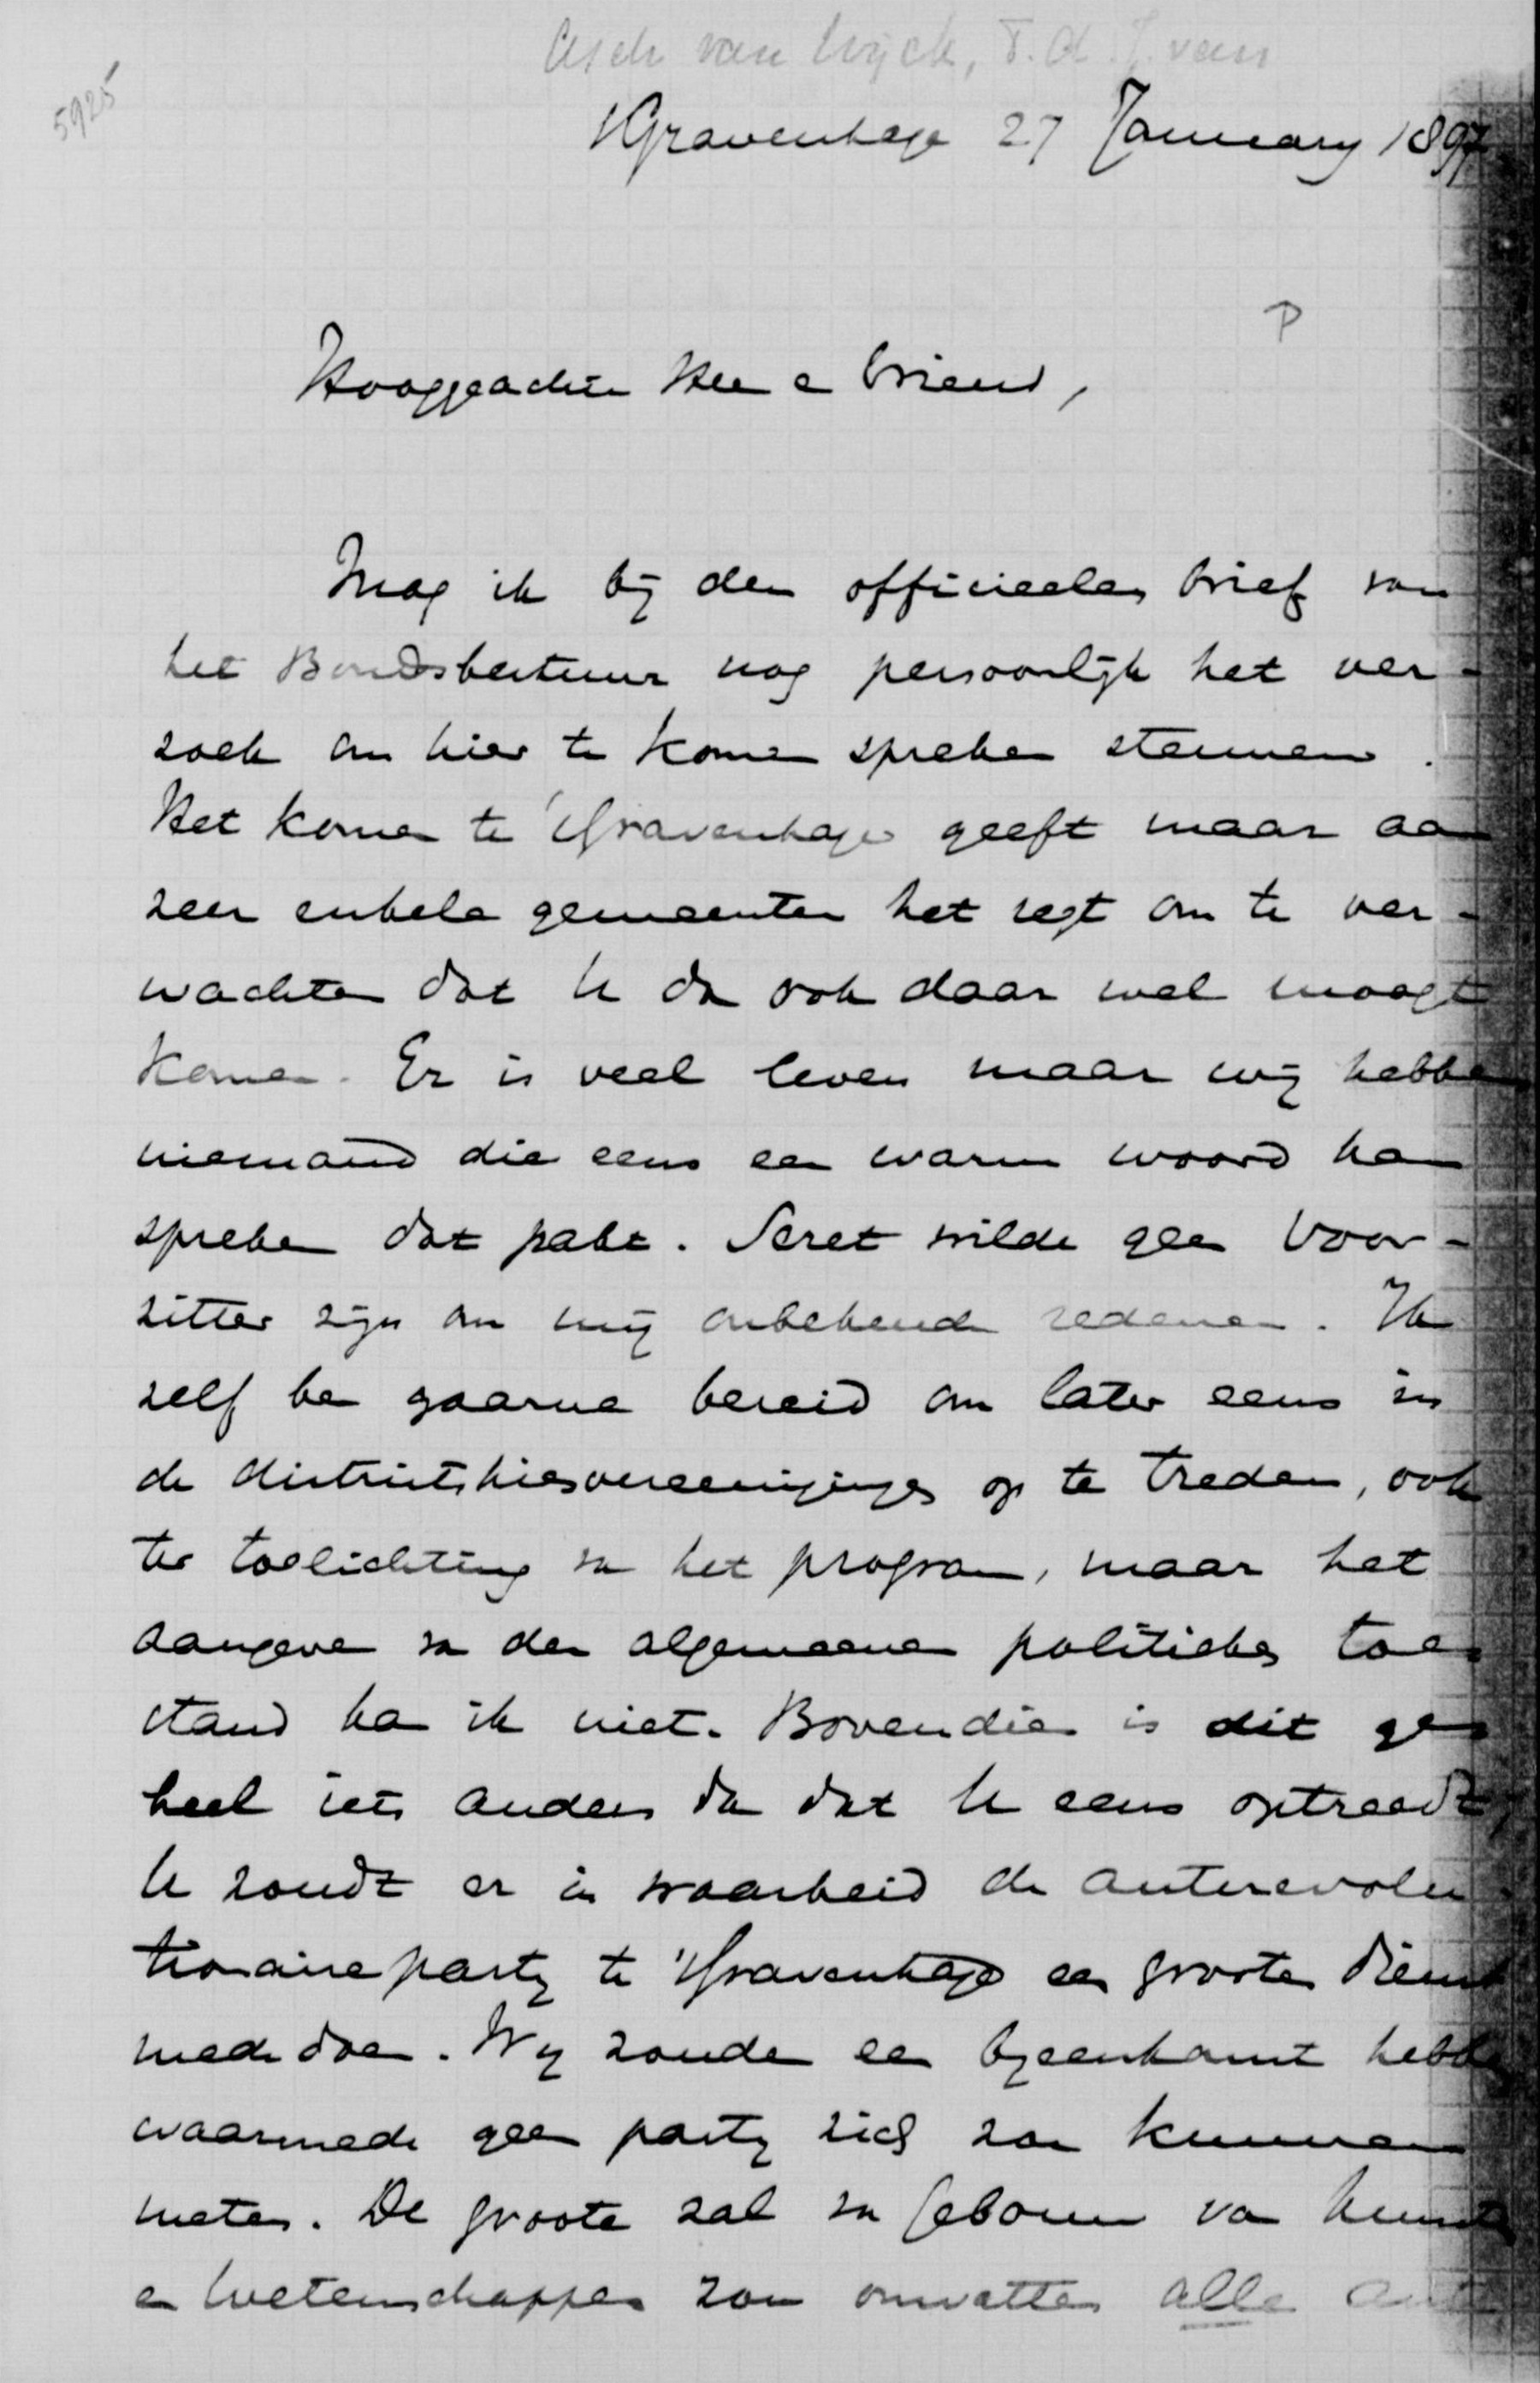 Asch van Wijck, T.A.J. van
5925
'sGravenhage 27 January 1897
P
Hooggeachte Heer en Vriend,
Mag ik bij den officieelen brief van
het Bondsbestuur nog persoonlijk het ver-
zoek om hier te komen spreken steunen.
Het komen te 'sGravenhage geeft maar aan
zeer enkele gemeenten het regt om te ver-
wachten dat U dan ook daar wel moogt
komen. Er is veel leven maar wij hebben
niemand die eens een warm woord kan
spreken dat pakt. Seret wilde geen Voor-
zitter zijn om mij onbekende redenen. Ik
zelf ben gaarne bereid om later eens in
de districtskiesvereenigingen op te treden, ook
ter toelichting van het program, maar het
aangeven van den algemeenen politieken toe-
stand kan ik niet. Bovendien is dit ge-
heel iets anders dan dat U eens optreedt,
U zoudt er in waarheid de antirevolu-
tionaire party te 'sGravenhage een grooten dienst
mede doen. Wy zouden een byeenkomst hebben
waarmede geen party zich zou kunnen
meten. De groote zal van Gebouw van Kunsten
en Wetenschappen zou omvatten alle anti